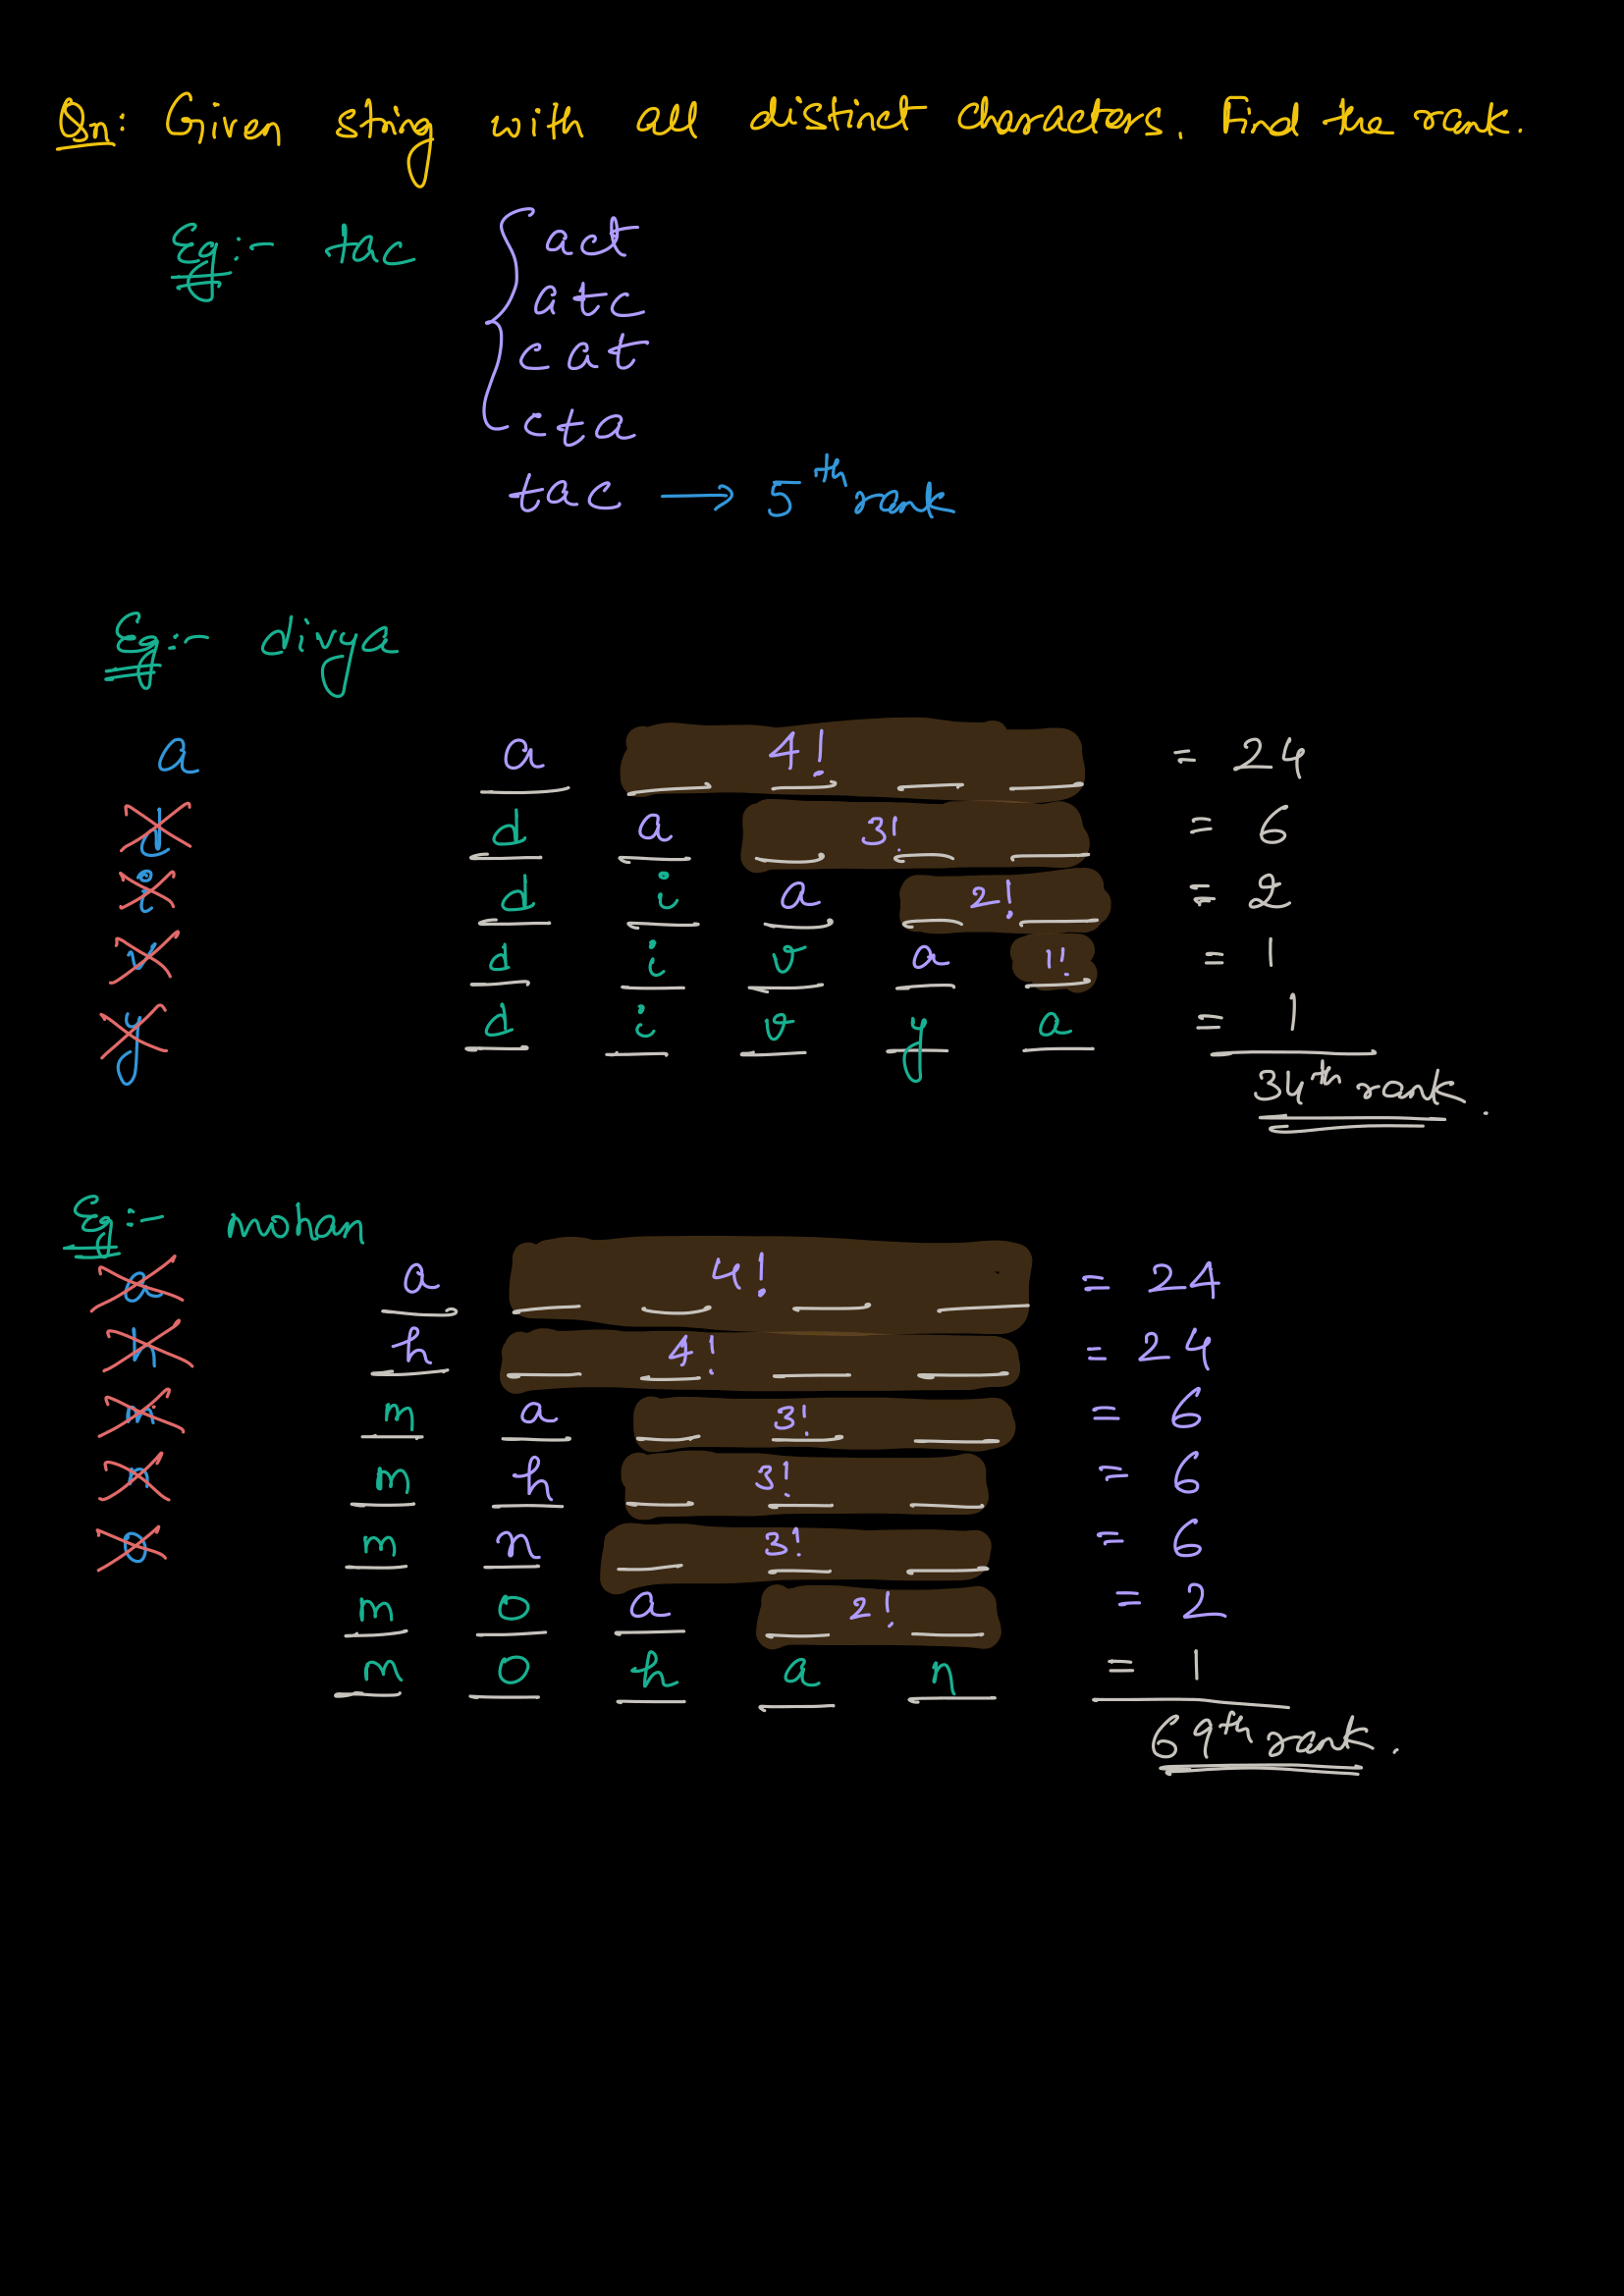 Qn: Given string with all distinct characters. Find the rank.
Eg:- tac
act
atc
cat
cta
tac → 5th rank
Eg:- divya
a a 4! = 24
d d a 3! = 6
i d i a 2! = 2
v d i v a 1! = 1
y d i v y a = 1
34th rank.
Eg:- mohan
a a 4! = 24
h h 4! = 24
m m a 3! = 6
n m h 3! = 6
o m n 3! = 6
m o a 2! = 2
m o h a n = 1
69th rank.